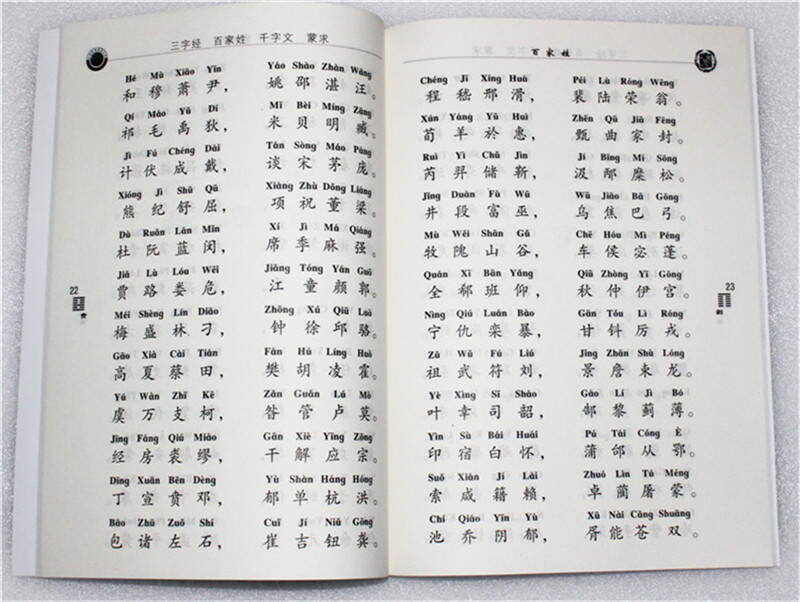 三字经 百家姓 千字文 蒙求
Hé Mù Xiāo Yǐn Yáo Shào Zhàn Wāng
和穆萧尹，姚邵湛汪。
Qí Máo Yǔ Dí Mǐ Bèi Míng Zāng
祁毛禹狄，米贝明臧。
Jì Fú Chéng Dài Tán Sòng Máo Páng
计伏成戴，谈宋茅庞。
Xióng Jǐ Shū Qū Xiàng Zhù Dǒng Liáng
熊纪舒屈，项祝董梁。
Dù Ruǎn Lán Mǐn Xí Jì Má Qiáng
杜阮蓝闵，席季麻强。
Jiǎ Lù Lóu Wēi Jiāng Tóng Yán Guō
贾路娄危，江童颜郭。
22
Méi Shèng Lín Diāo Zhōng Xú Qiū Luò
梅盛林刁，钟徐邱骆。
Gāo Xià Cài Tián Fán Hú Líng Huò
高夏蔡田，樊胡凌霍。
Yú Wàn Zhī Kē Zǎn Guǎn Lú Mò
虞万支柯，昝管卢莫。
Jīng Fáng Qiú Miào Gān Xiè Yīng Zōng
经房裘缪，干解应宗。
Dīng Xuān Bēn Dèng Yù Shàn Háng Hóng
丁宣贲邓，郁单杭洪。
Bāo Zhū Zuǒ Shí Cuī Jí Niǔ Gōng
包诸左石，崔吉钮龚。
百家姓
Chéng Jī Xíng Huá Péi Lù Róng Wēng
程嵇邢滑，裴陆荣翁。
Xún Yáng Yū Huì Zhēn Qū Jiā Fēng
荀羊於惠，甄曲家封。
Ruì Yì Chǔ Jìn Jí Bǐng Mí Sōng
芮羿储靳，汲邴糜松。
Jǐng Duàn Fù Wū Wū Jiāo Bā Gōng
井段富巫，乌焦巴弓。
Mù Wěi Shān Gǔ Chē Hóu Mì Péng
牧隗山谷，车侯宓蓬。
Quán Xī Bān Yǎng Qiū Zhòng Yī Gōng
全郗班仰，秋仲伊宫。
23
Nìng Qiú Luán Bào Gān Tǒu Lì Róng
宁仇栾暴，甘钭厉戎。
Zǔ Wǔ Fú Liú Jǐng Zhān Shù Lóng
祖武符刘，景詹束龙。
Yè Xìng Sī Sháo Gào Lí Jì Bó
叶幸司韶，郜黎蓟薄。
Yìn Sù Bái Huái Pú Tái Cóng È
印宿白怀，蒲邰从鄂。
Suǒ Xián Jí Lài Zhuó Lìn Tú Méng
索咸籍赖，卓蔺屠蒙。
Chí Qiáo Yīn Yù Xū Nài Cāng Shuāng
池乔阴郁，胥能苍双。